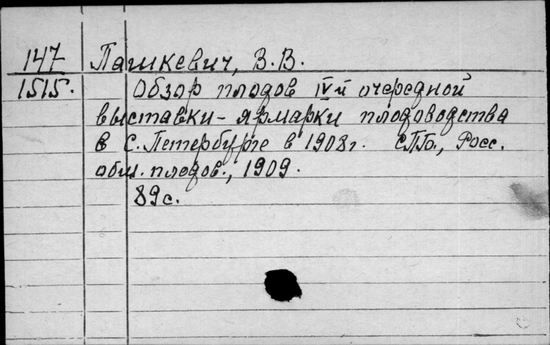 147 Пашкевич, В.В.
1515. Обзор плодов IV-й очередной
выставки-ярмарки плодоводства
в С. Петербурге в 1908 г. СПб., Росс.
общ. плодов., 1909.
89 с.